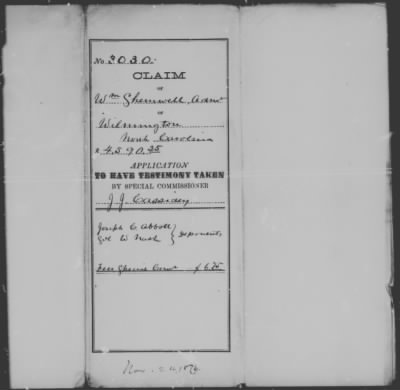 No. 3030.
CLAIM
OF
Wm Shemwell Adm'r
OF
Wilmington
North Carolina
$ 4590.35
APPLICATION
TO HAVE TESTIMONY TAKEN
BY SPECIAL COMMISSIONER
J. J. Cassidey
Joseph C. Abbott
Geo. W. Nash } Deponents
Fees Special Com'r $6.75
Nov. 24, 187